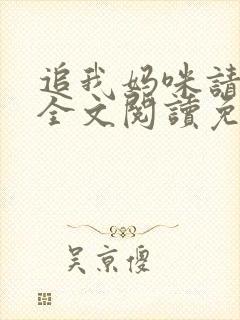 追我妈咪請
全文閱讀免
吴京傻